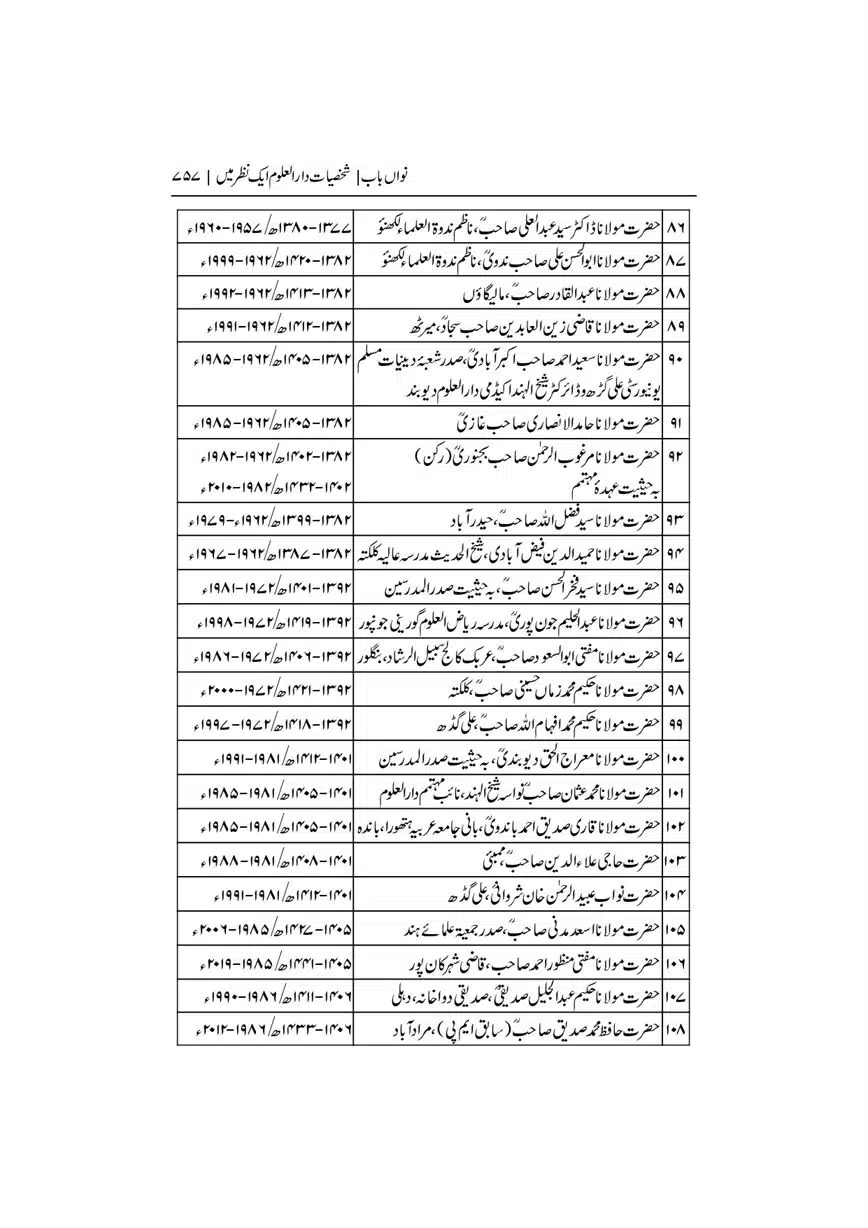 نواں باب | شخصیات دارالعلوم ایک نظر میں | ۷۵۷
۸۶ حضرت مولانا ڈاکٹر سید عبدالعلی صاحبؒ، ناظم ندوۃ العلماء لکھنؤ ۱۳۷۷-۱۳۸۰ھ/۱۹۵۷-۱۹۶۰ء
۸۷ حضرت مولانا ابوالحسن علی صاحب ندویؒ، ناظم ندوۃ العلماء لکھنؤ ۱۳۸۲-۱۴۲۰ھ/۱۹۶۲-۱۹۹۹ء
۸۸ حضرت مولانا عبدالقادر صاحبؒ، مالیگاؤں ۱۳۸۲-۱۴۱۳ھ/۱۹۶۲-۱۹۹۲ء
۸۹ حضرت مولانا قاضی زین العابدین صاحب سجادؒ، میرٹھ ۱۳۸۲-۱۴۱۲ھ/۱۹۶۲-۱۹۹۱ء
۹۰ حضرت مولانا سعید احمد صاحب اکبرآبادیؒ، صدر شعبۂ دینیات مسلم ۱۳۸۲-۱۴۰۵ھ/۱۹۶۲-۱۹۸۵ء
یونیورسٹی علی گڑھ و ڈائرکٹر شیخ الہند اکیڈمی دارالعلوم دیوبند
۹۱ حضرت مولانا حامد الانصاری صاحب غازیؒ ۱۳۸۲-۱۴۰۵ھ/۱۹۶۲-۱۹۸۵ء
۹۲ حضرت مولانا مرغوب الرحمٰن صاحب بجنوریؒ (رکن) ۱۳۸۲-۱۴۰۲ھ/۱۹۶۲-۱۹۸۲ء
بہ حیثیت عہدۂ مہتمم ۱۴۰۲-۱۴۳۲ھ/۱۹۸۲-۲۰۱۰ء
۹۳ حضرت مولانا سید فضل اللہ صاحبؒ، حیدرآباد ۱۳۸۲-۱۳۹۹ھ/۱۹۶۲ء-۱۹۷۹ء
۹۴ حضرت مولانا حمید الدین فیض آبادی، شیخ الحدیث مدرسہ عالیہ کلکتہ ۱۳۸۲-۱۳۸۷ھ/۱۹۶۲-۱۹۶۷ء
۹۵ حضرت مولانا سید فخر الحسن صاحبؒ، بہ حیثیت صدر المدرسین ۱۳۹۲-۱۴۰۱ھ/۱۹۷۲-۱۹۸۱ء
۹۶ حضرت مولانا عبدالحلیم جون پوریؒ، مدرسہ ریاض العلوم گورینی جونپور ۱۳۹۲-۱۴۱۹ھ/۱۹۷۲-۱۹۹۸ء
۹۷ حضرت مولانا مفتی ابوالسعود صاحبؒ، عربک کالج سبیل الرشاد، بنگلور ۱۳۹۲-۱۴۰۶ھ/۱۹۷۲-۱۹۸۶ء
۹۸ حضرت مولانا حکیم محمد زماں حسینی صاحبؒ، کلکتہ ۱۳۹۲-۱۴۲۱ھ/۱۹۷۲-۲۰۰۰ء
۹۹ حضرت مولانا حکیم محمد افہام اللہ صاحبؒ، علی گڈھ ۱۳۹۲-۱۴۱۸ھ/۱۹۷۲-۱۹۹۷ء
۱۰۰ حضرت مولانا معراج الحق دیوبندیؒ، بہ حیثیت صدر المدرسین ۱۴۰۱-۱۴۱۲ھ/۱۹۸۱-۱۹۹۱ء
۱۰۱ حضرت مولانا محمد عثمان صاحبؒ نواسہ شیخ الہند، نائب مہتمم دارالعلوم ۱۴۰۱-۱۴۰۵ھ/۱۹۸۱-۱۹۸۵ء
۱۰۲ حضرت مولانا قاری صدیق احمد باندویؒ، بانی جامعہ عربیہ ہتھورا، باندہ ۱۴۰۱-۱۴۰۵ھ/۱۹۸۱-۱۹۸۵ء
۱۰۳ حضرت حاجی علاء الدین صاحبؒ، ممبئی ۱۴۰۱-۱۴۰۸ھ/۱۹۸۱-۱۹۸۸ء
۱۰۴ حضرت نواب عبید الرحمٰن خان شروانیؒ، علی گڈھ ۱۴۰۱-۱۴۱۲ھ/۱۹۸۱-۱۹۹۱ء
۱۰۵ حضرت مولانا اسعد مدنی صاحبؒ، صدر جمعیۃ علمائے ہند ۱۴۰۵-۱۴۲۷ھ/۱۹۸۵-۲۰۰۶ء
۱۰۶ حضرت مولانا مفتی منظور احمد صاحب، قاضی شہر کان پور ۱۴۰۵-۱۴۴۱ھ/۱۹۸۵-۲۰۱۹ء
۱۰۷ حضرت مولانا حکیم عبدالجلیل صدیقیؒ، صدیقی دواخانہ، دہلی ۱۴۰۶-۱۴۱۱ھ/۱۹۸۶-۱۹۹۰ء
۱۰۸ حضرت حافظ محمد صدیق صاحبؒ (سابق ایم پی)، مرادآباد ۱۴۰۶-۱۴۳۳ھ/۱۹۸۶-۲۰۱۲ء